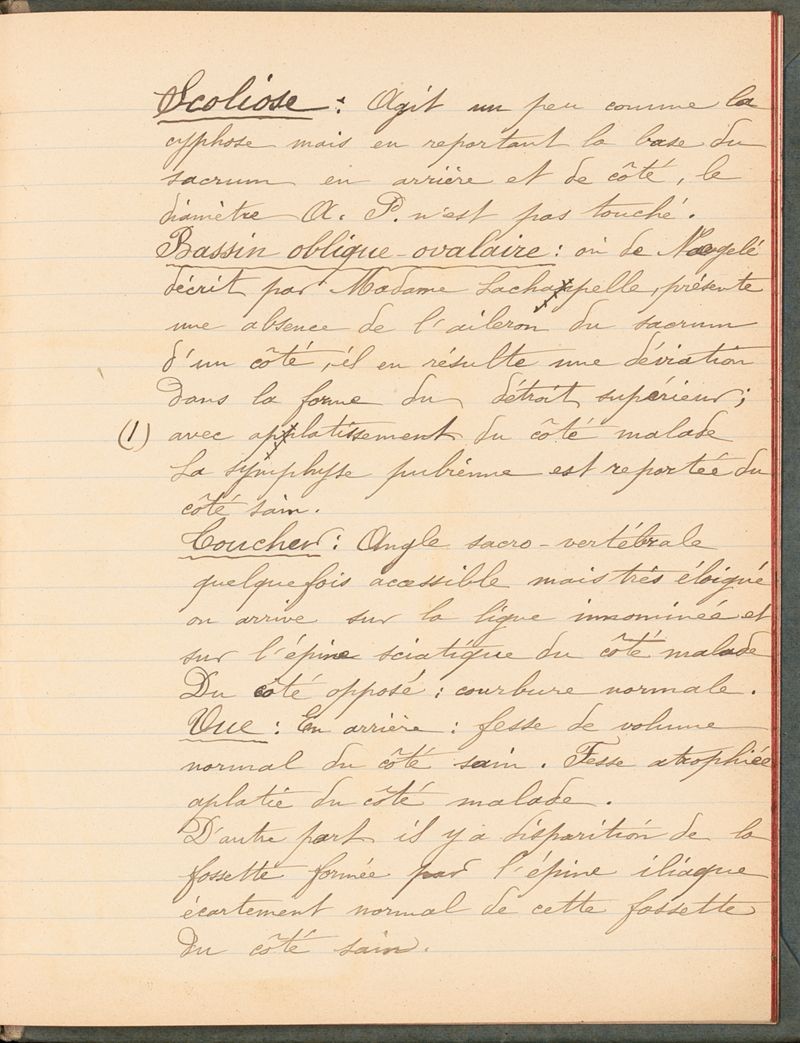 Scoliose : Agit un peu comme la
cyphose mais en reportant la base du
sacrum en arrière et de côté, le
diamètre A. P. n'est pas touché.
Bassin oblique-ovalaire : ou de Naegelé
décrit par Madame Lachappelle, présente
une absence de l'aileron du sacrum
d'un côté, il en résulte une déviation
dans la forme du détroit supérieur ;
(1) avec applatissement du côté malade
La symphyse pubienne est reportée du
côté sain.
Toucher : Angle sacro-vertébrale
quelquefois accessible mais très éloigné
on arrive sur la ligne innominée et
sur l'épine sciatique du côté malade
Du côté opposé : courbure normale.
Vue : En arrière : fesse de volume
normal du côté sain. Fesse atrophiée
aplatie du côté malade.
D'autre part il y a disparition de la
fossette formée par l'épine iliaque
écartement normal de cette fossette
du côté sain.